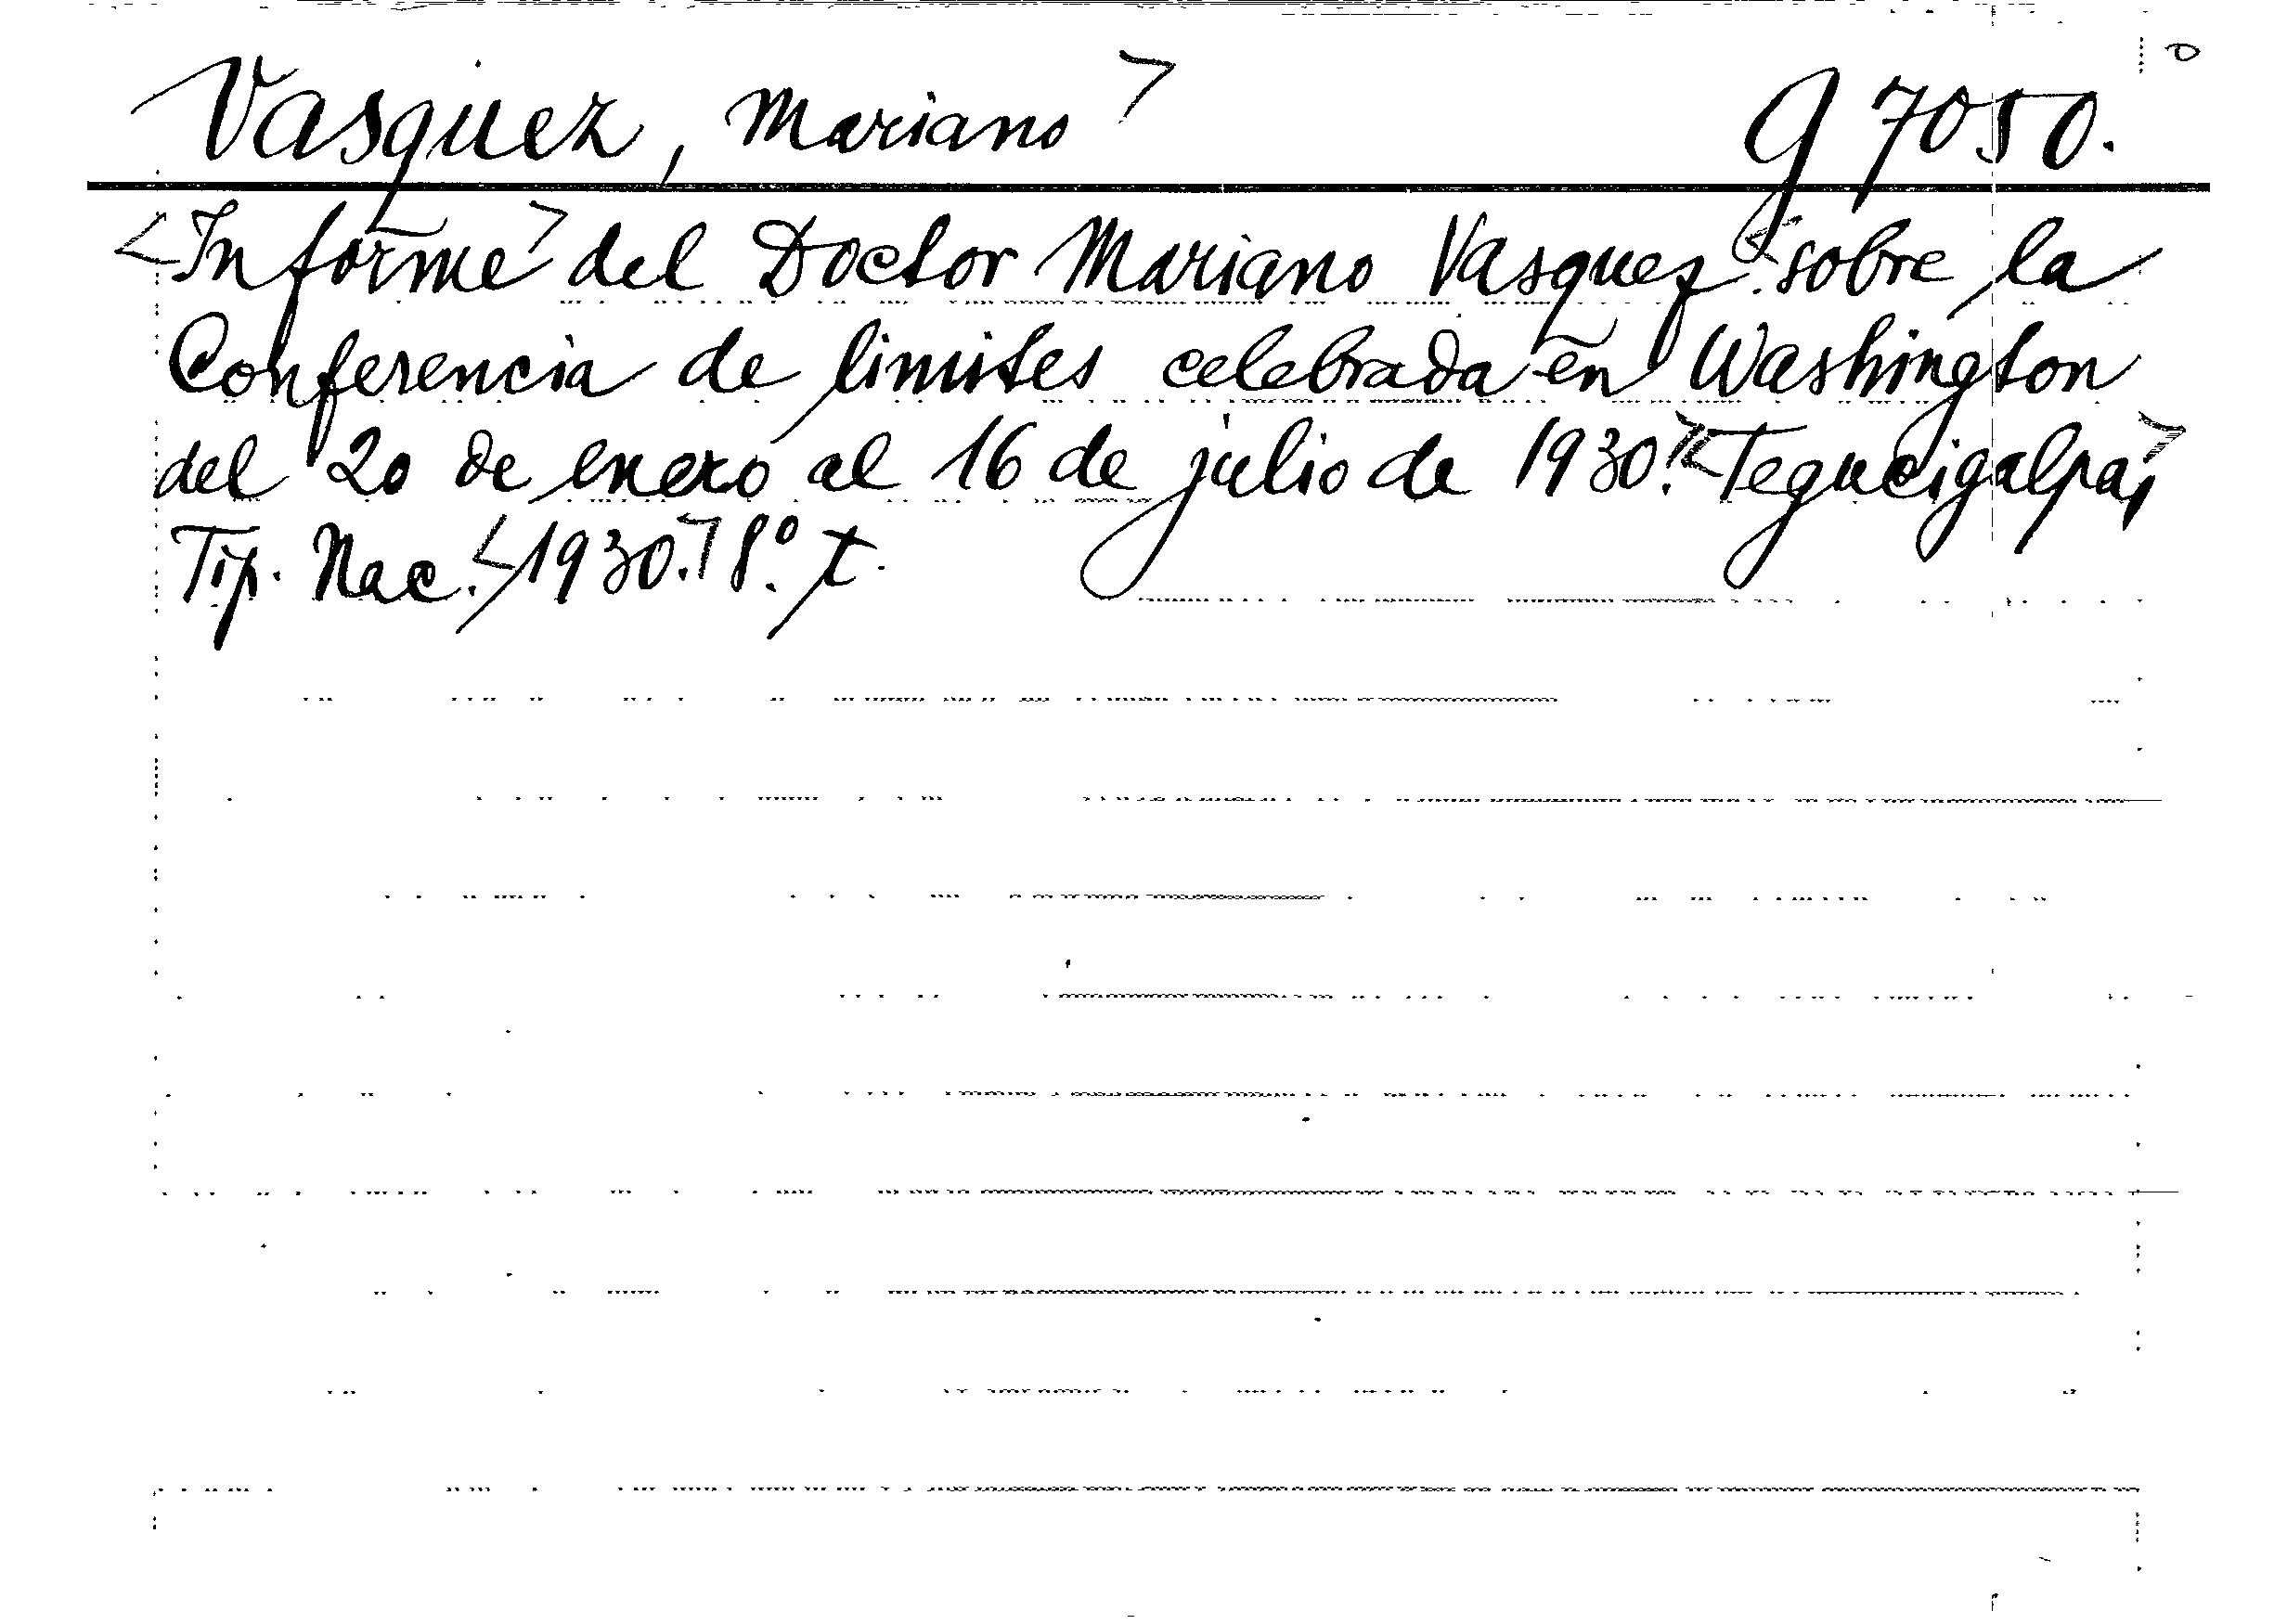 Vasquez, Mariano> g 7050.
<Informe> del Doctor Mariano Vasquez <sobre la
Conferencia de limites celebrada en Washington
del 20 de enero al 16 de julio de 1930.> <Tegucigalpa,>
Tip. Nac. <1930.> 8.º t.